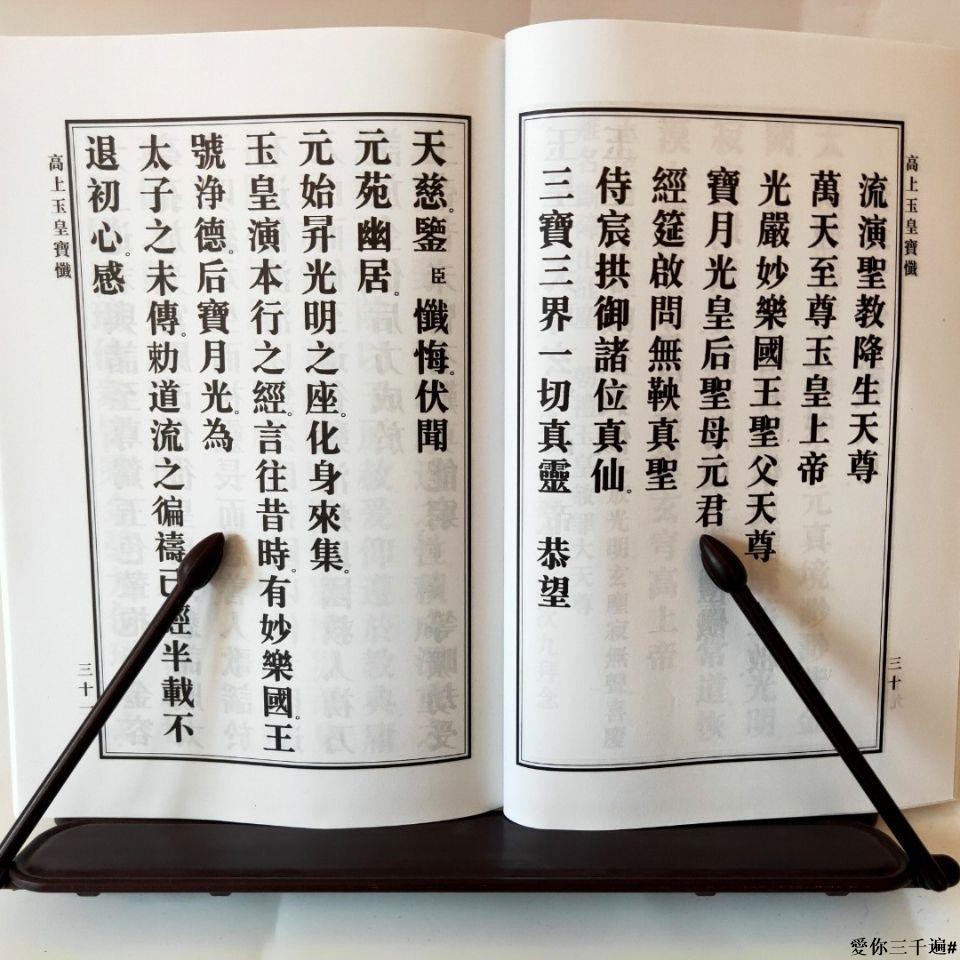 高上玉皇寶懺
流演聖教降生天尊
萬天至尊玉皇上帝
光嚴妙樂國王聖父天尊
寶月光皇后聖母元君
經筵啟問無鞅真聖
侍宸拱御諸位真仙。
三寶三界一切真靈 恭望
三十
天慈。鑒 臣 懺悔。伏聞
元苑幽居。
元始昇光明之座。化身來集。
玉皇演本行之經。言往昔時。有妙樂國。王
號浄德。后寶月光。為
太子之未傳。勅道流之徧禱已經半載不
退初心。感
高上玉皇寶懺
三十一
愛你三千遍#